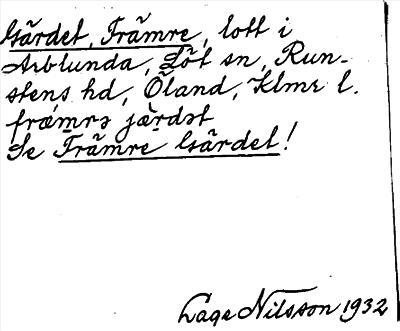 Gärdet, Främre, lott i
Arblunda, Löt sn, Run-
stens hd, Öland, Klmr l.
främrə jæ̀rdət
Se Främre Gärdet!
Lage Nilsson 1932